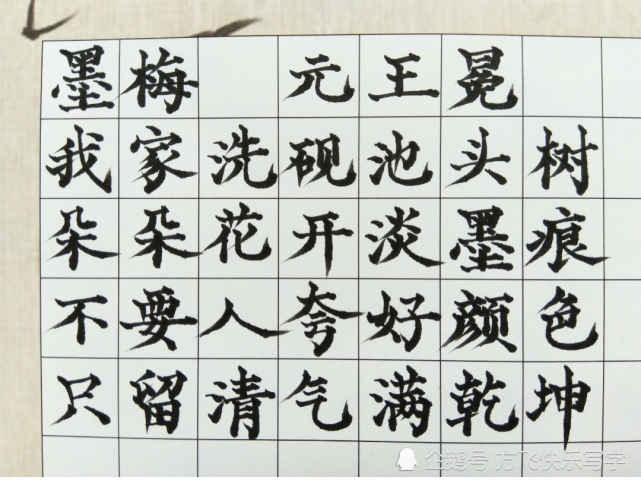 墨梅 元王冕
我家洗砚池头树
朵朵花开淡墨痕
不要人夸好颜色
只留清气满乾坤
企鹅号 方飞快乐写字